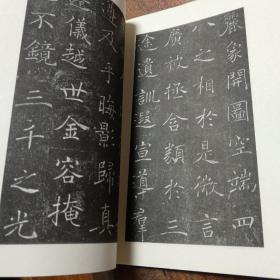 麗象開圖空端四
八之相於是微言
廣被拯含類於三
途遺訓遐宣導群
遵及乎晦影歸真
遷儀越世金容掩
不鏡三千之光